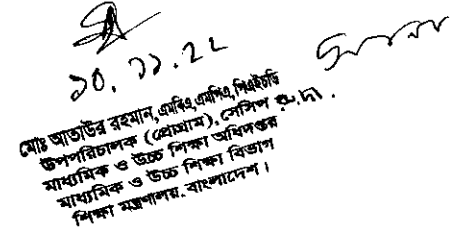 ১০.১১.২২
মোঃ আতাউর রহমান, এমবিএ, এমপিএ, পিএইচডি
উপপরিচালক (প্রোগ্রাম), সেসিপ
মাধ্যমিক ও উচ্চ শিক্ষা অধিদপ্তর
মাধ্যমিক ও উচ্চ শিক্ষা বিভাগ
শিক্ষা মন্ত্রণালয়, বাংলাদেশ।